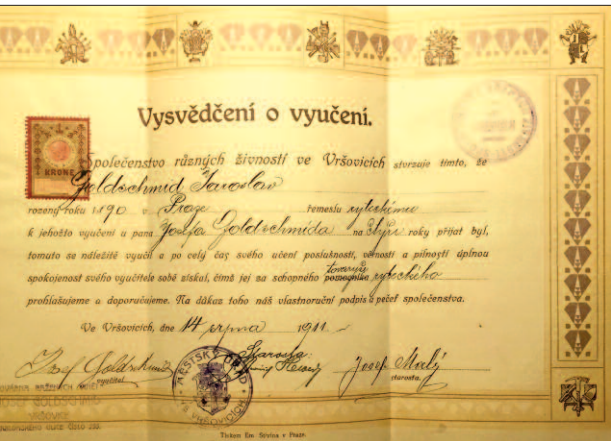 Vysvědčení o vyučení.
KRONE
Společenstvo různých živností ve Vršovicích stvrzuje tímto, že
Goldschmid Jaroslav
rozený roku 1890 v Praze řemeslu ryteckému
k jehožto vyučení u pana Josefa Goldschmida na čtyři roky přijat byl,
tomuto se náležitě vyučil a po celý čas svého učení poslušností, věrností a pilností úplnou
spokojenost svého vyučitele sobě získal, čímž jej za schopného tovaryše ryteckého
prohlašujeme a doporučujeme. Na důkaz toho náš vlastnoruční podpis a pečeť společenstva.
Ve Vršovicích, dne 14 srpna 1911.
Starosta:
Josef Goldschmid Josef Malý
vyučitel. starosta.
MĚSTSKÝ ÚŘAD VE VRŠOVICÍCH
JOSEF GOLDSCHMID
VRŠOVICE
Tiskem Em. Stivína v Praze.